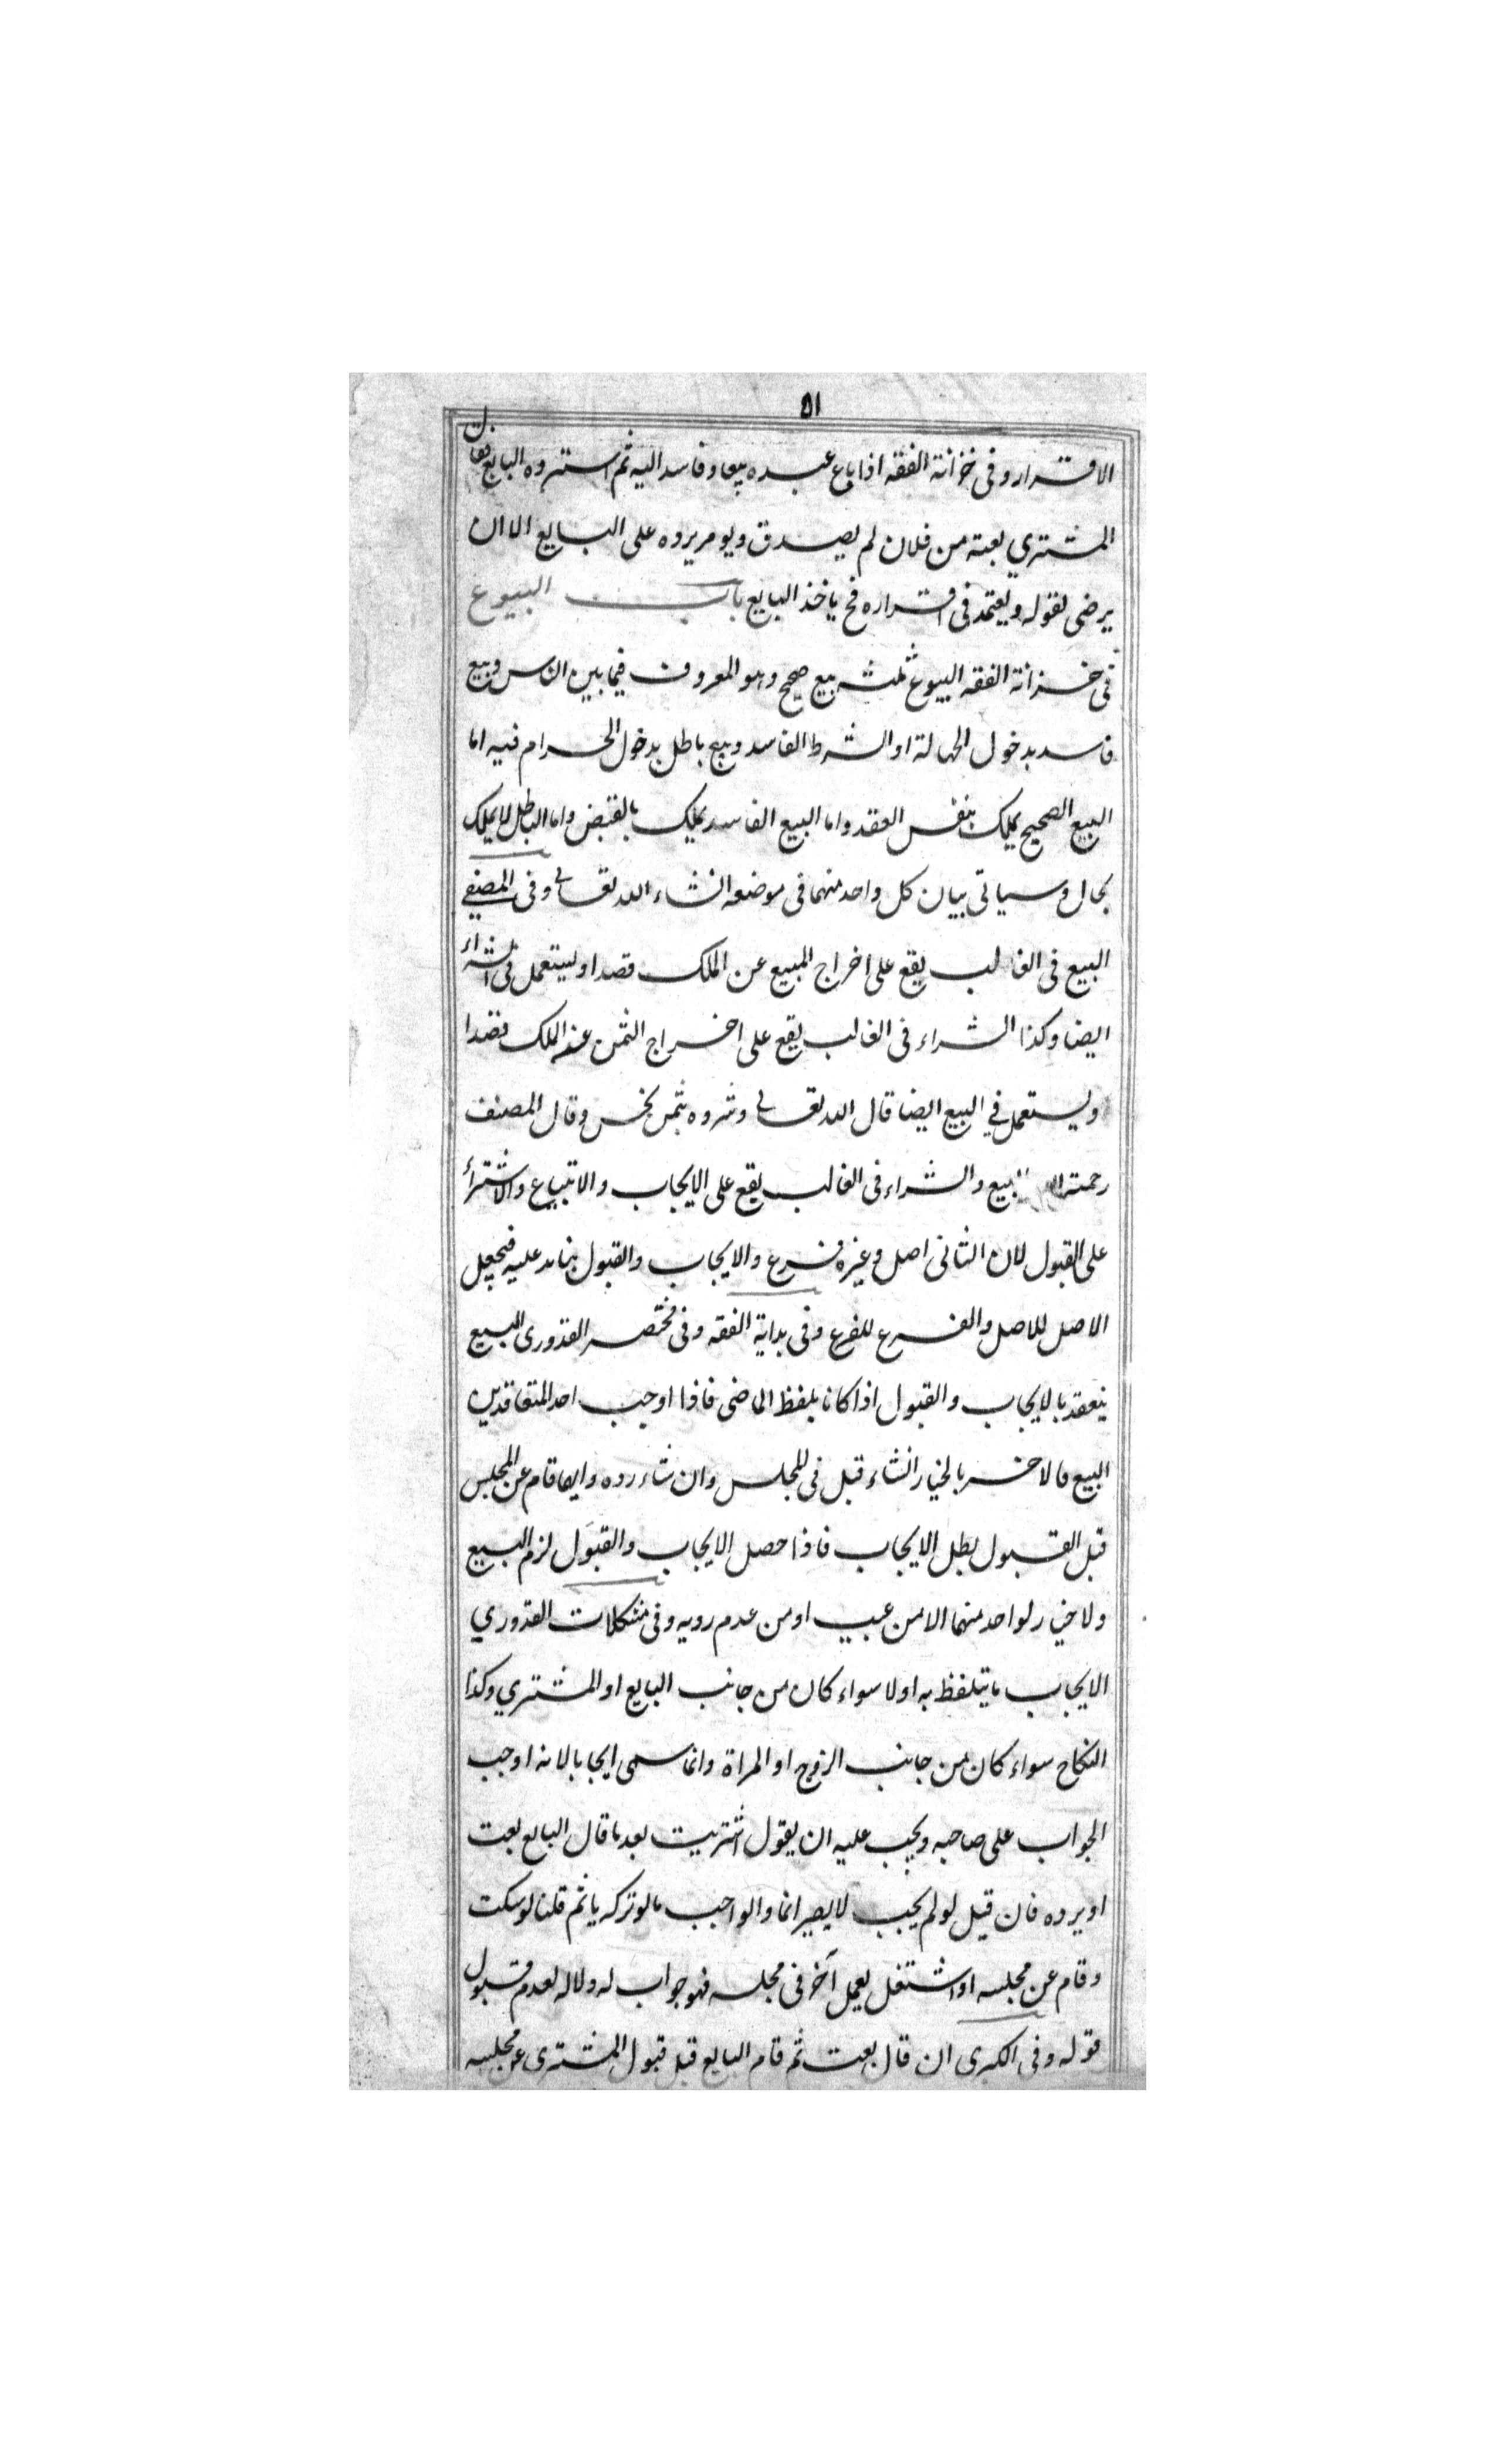 ٥١
الاقرار وفى خزانة الفقه اذا باع عبده بيعا وفاسد اليه ثم استرده البايع فقال
المشتري بعته من فلان لم يصدق ويومر يرده على البايع الا ان
يرضى لقوله ويعتمد فى اقراره فح ياخذ البايع باب البيوع
فى خزانة الفقه البيوع ثلثه بيع صحيح وهو المعروف فيما بين الناس وبيع
فاسد بدخول الجهالة او الشرط الفاسد وبيع باطل بدخول الحرام فيه اما
البيع الصحيح يملك بنفس العقد واما البيع الفاسد يملك بالقبض واما الباطل لا يملك
بحال وسياتى بيان كل واحد منهما فى موضعه انشاء الله تعالى وفى المصفى
البيع فى الغالب يقع على اخراج المبيع عن الملك قصدا ويستعمل فى الشراء
ايضا وكذا الشراء فى الغالب يقع على اخراج الثمن عن الملك قصدا
ويستعمل في البيع ايضا قال الله تعالى وشروه بثمن بخس وقال المصنف
رحمة الله البيع والشراء فى الغالب يقع على الايجاب والابتياع والاشتراء
على القبول لان الثانى اصل وغيره فرع والايجاب والقبول بناء عليه فيجعل
الاصل للاصل والفرع للفرع وفى بداية الفقه وفى مختصر القدورى البيع
ينعقد بالايجاب والقبول اذا كانا بلفظ الماضى فاذا اوجب احد المتعاقدين
البيع فالاخر بالخيار انشاء قبل فى المجلس وان شاء رده وايهما قام عن المجلس
قبل القبول بطل الايجاب فاذا حصل الايجاب والقبول لزم البيع
ولا خيار لواحد منهما الا من عيب او من عدم رويه وفى مشكلات القدوري
الايجاب ما يتلفظ به اولا سواء كان من جانب البايع او المشتري وكذا
النكاح سواء كان من جانب الزوج او المراة وانما سمى ايجابا لانه اوجب
الجواب على صاحبه ويجب عليه ان يقول اشتريت بعد ما قال البايع بعت
او يرده فان قيل لو لم يجب لا يصير اثما والواجب ما لو تركه ياثم قلنا لو سكت
وقام عن مجلسه او اشتغل بعمل آخر فى مجلسه فهو جواب له دلاله لعدم قبول
قوله وفى الكبرى ان قال بعت ثم قام البايع قبل قبول المشترى عن مجلسه